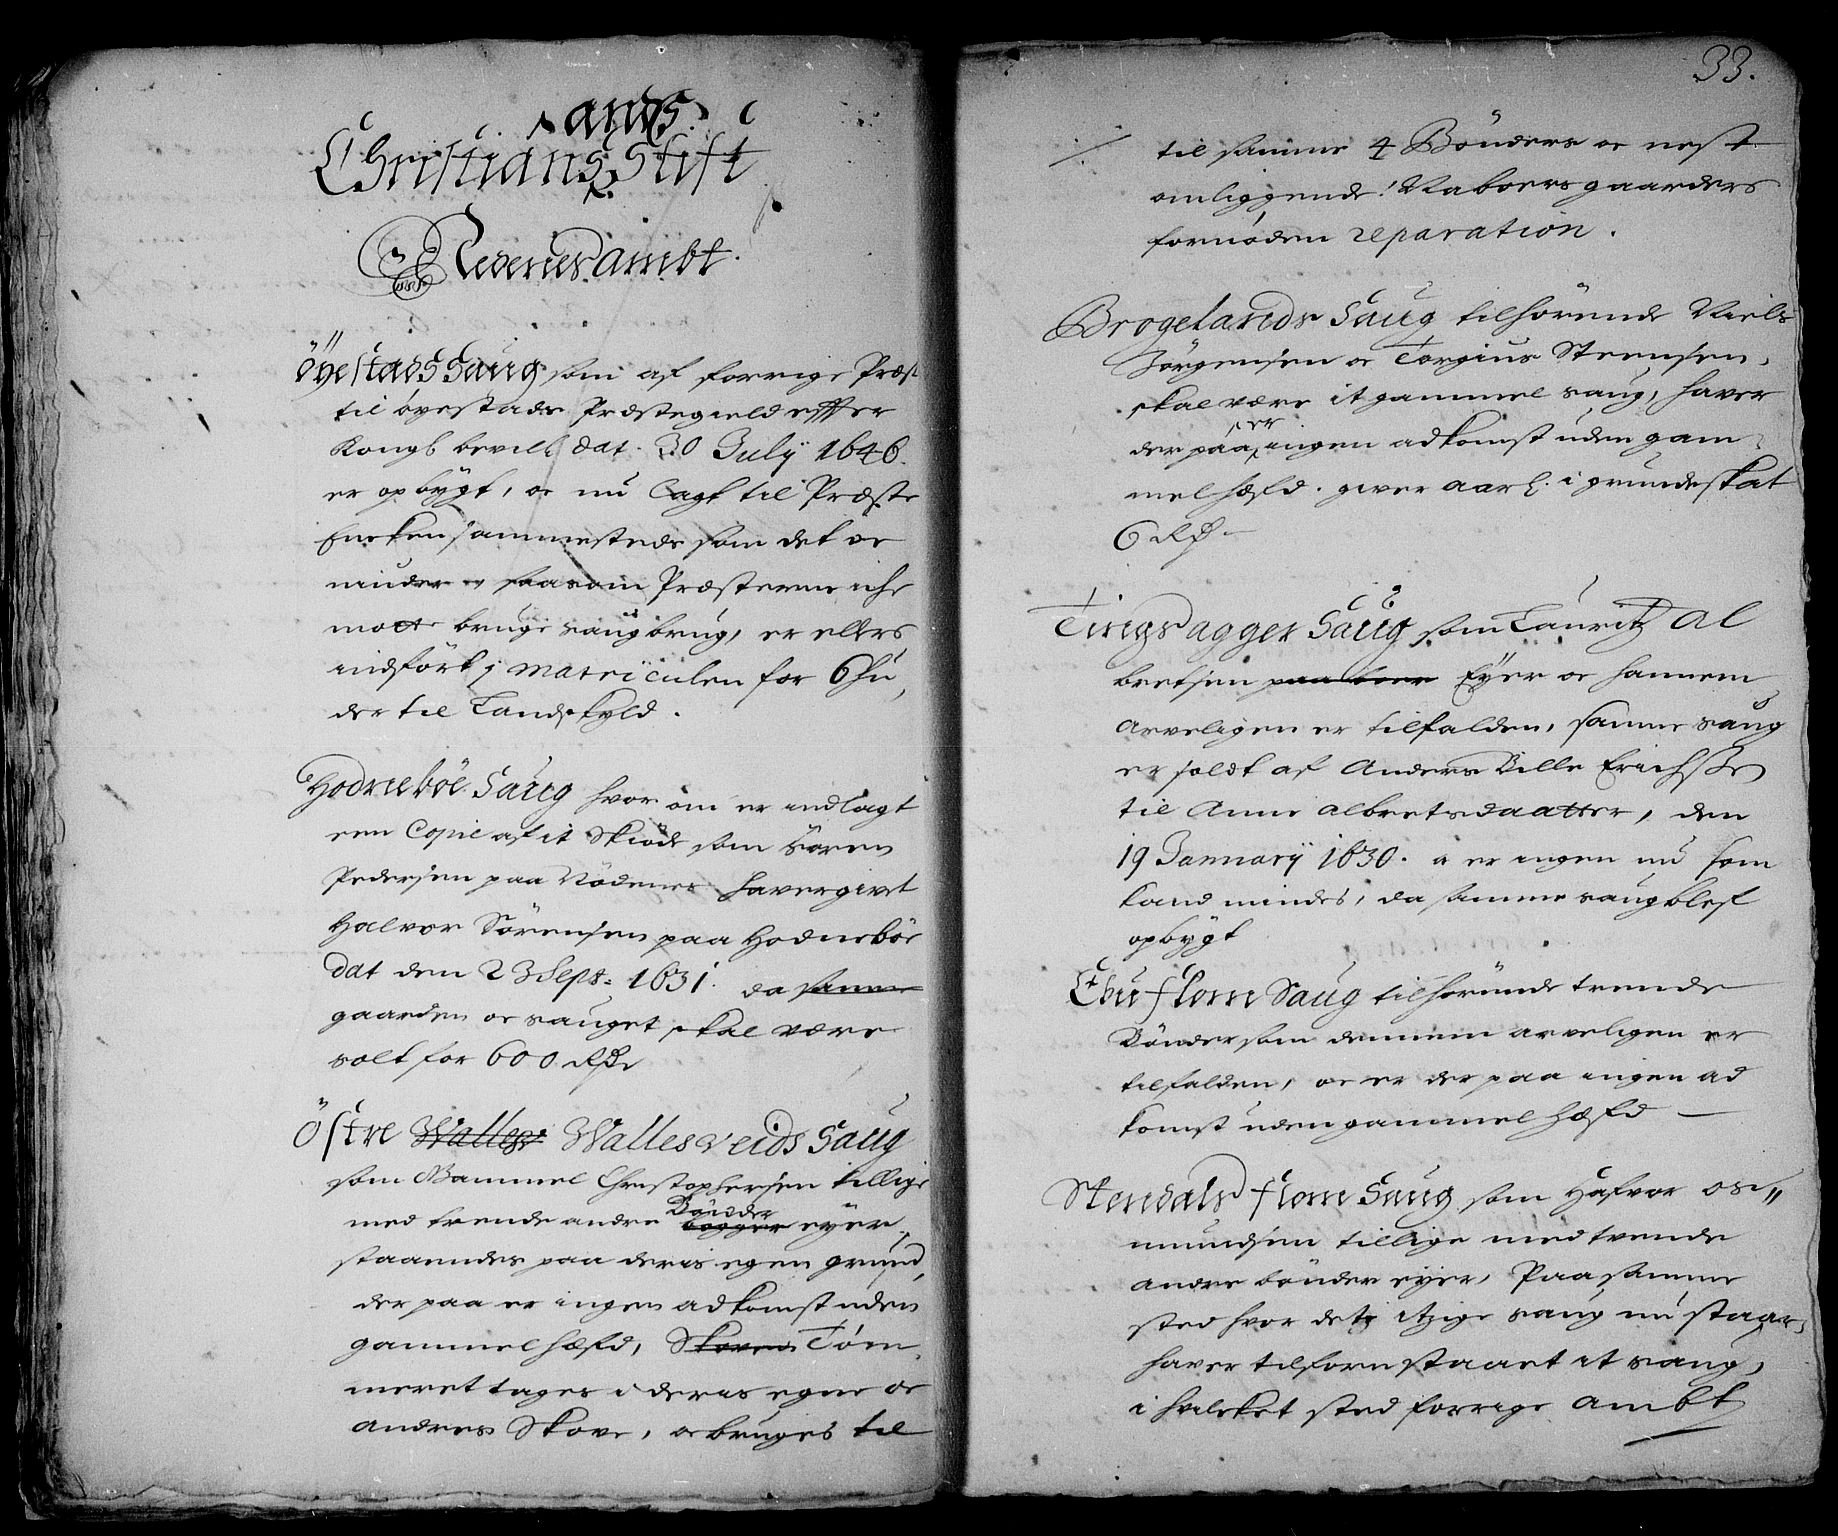 ands
Christians Stift
Nedenes ambt.
Öyestads Saug som af forrige Præst
til öyestads Præstegield effter
Kongl bevill. dat. 30 July 1646.
er opbygt, oc nu lagt til Præste
Encken sammesteds som det oc
niuder saasom Præsterne iche
motte bruge saugbrug, er ellers
indfört j matriculen for 6 hu,
der til Landskyld.
Hodneböe Saug hvor om er indlagt
een Copie af it Skiöde som Sören
Pedersen paa Nödenes hafver givet
Halvor Sörensen paa Hodneböe
dat den 23 Sept: 1631. da samme
gaarden oc sauget skal være
solt for 600 Rdr
Östre Walles Wallesveids Saug
som Gammel Christophersen tillige
med trende andre bögger Bönder eyer,
staaendes paa deris egen grund,
der paa er ingen adkomst uden
gammel hæfd, Skoven Töm,
meret tages i deris egne oc
andres Skove, oc bruges til
33.
til samme 4 Bönders oc nest
omliggende Naboers gaarders
fornöden reparation.
Brogelands Saug tilhörende Niels
Jörgensen oc Torgius Steensen,
skal være it gammel saug, haver
der paa er ingen adkomst uden gam
mel hæfd. giver aarl. i grundeskat
6 Rdr
Tingsagger Saug som Lauritz Al
bretsen paaboer Eyer oc hannem
arveligen er tilfalden, samme saug
er soldt af Anders Bille Erichsen
til Anne albretsdaatter, den
19 January 1630. er ingen nu som
kand mindes, da samme saug blef
opbygt
flom Saug tilhörende trende
Bönder som dennem arveligen er
tilfalden, oc er der paa ingen ad
komst uden gammel hæfd
Stendals flom Saug som Hafvor os„
mundsen tillige med tvende
andre bönder eyer, Paa samme
sted hvor det itzige saug nu staar,
haver tilforn staaet it saug,
i hvilcket sted forrige ambt